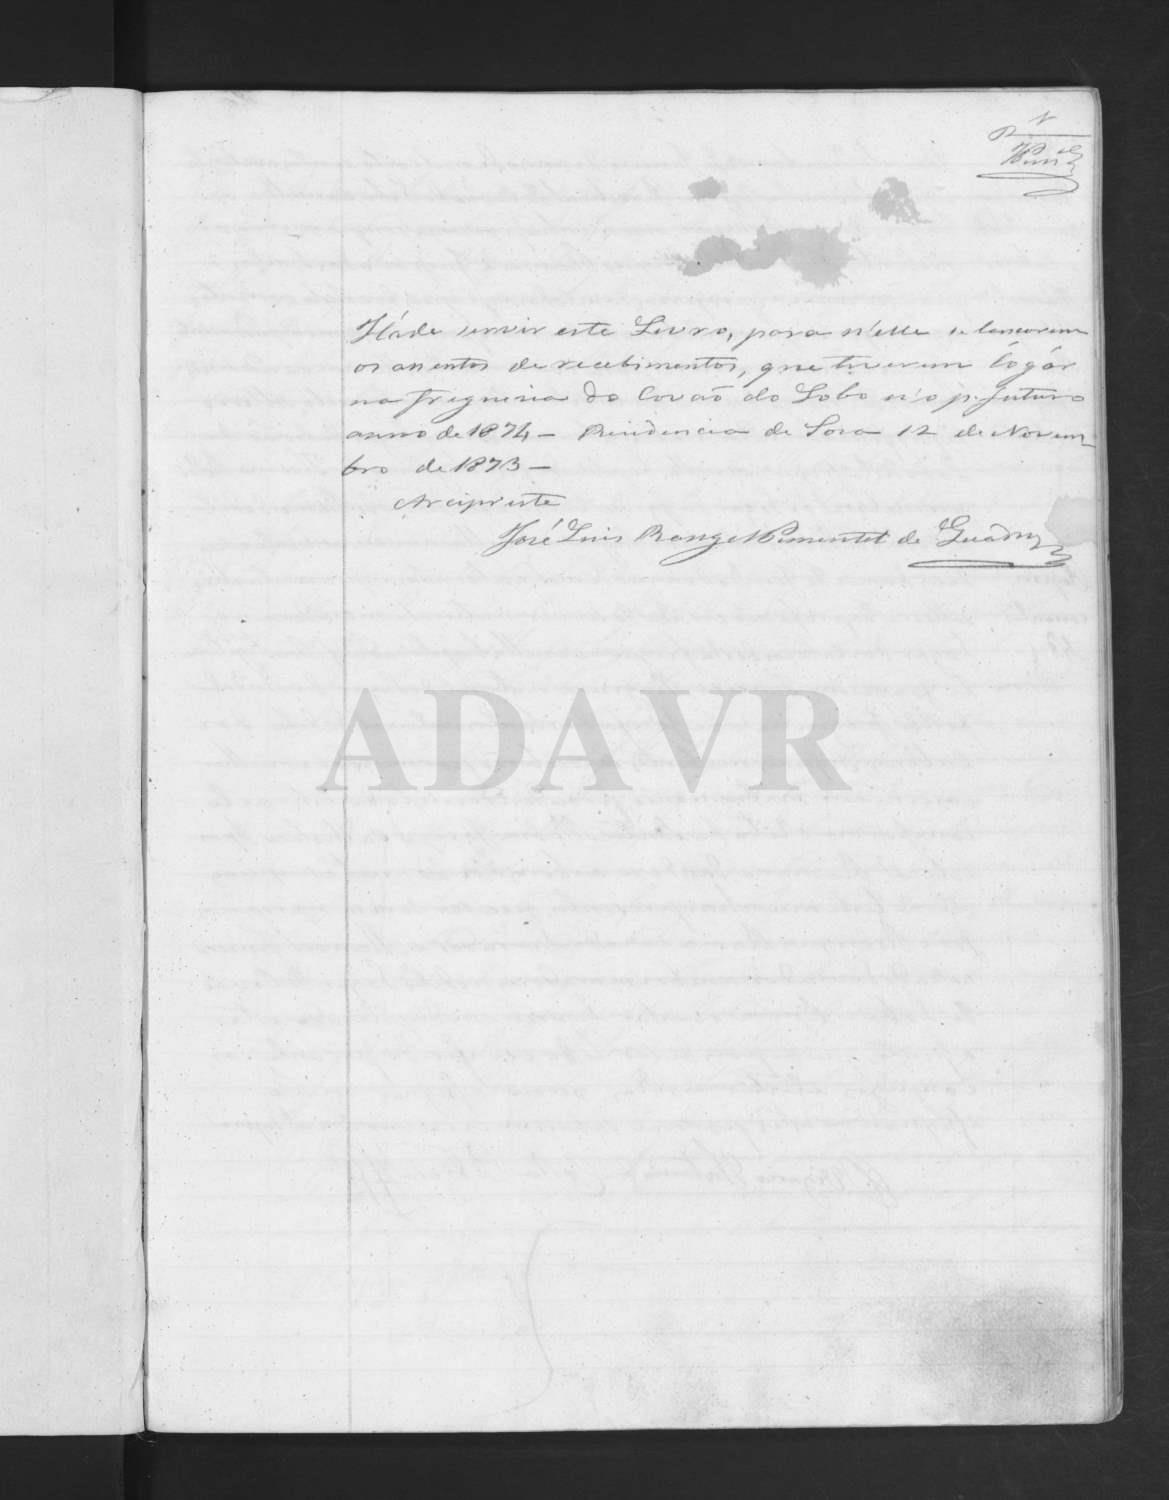 1
R.
Pim.el
Háde servir este Livro, para n'elle se lancarem
os assentos de recebimentos, que tiverem logár
na freguezia do Covaõ do Lobo n'o p. futuro
anno de 1874 – Rezidencia de Soza 12 de Novem-
bro de 1873 –
Arcipreste
José Luis Rangel Pimentel de Quadros
ADAVR